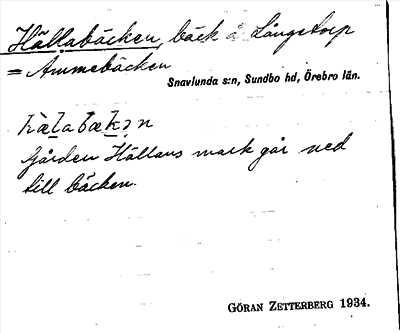 Hällabäcken, bäck å Långstorp
= Ammebäcken
Snavlunda s:n, Sundbo hd, Örebro län.
hæ̀labæk̬ən
Gården Hällans mark går ned
till bäcken.
GÖRAN ZETTERBERG 1934.